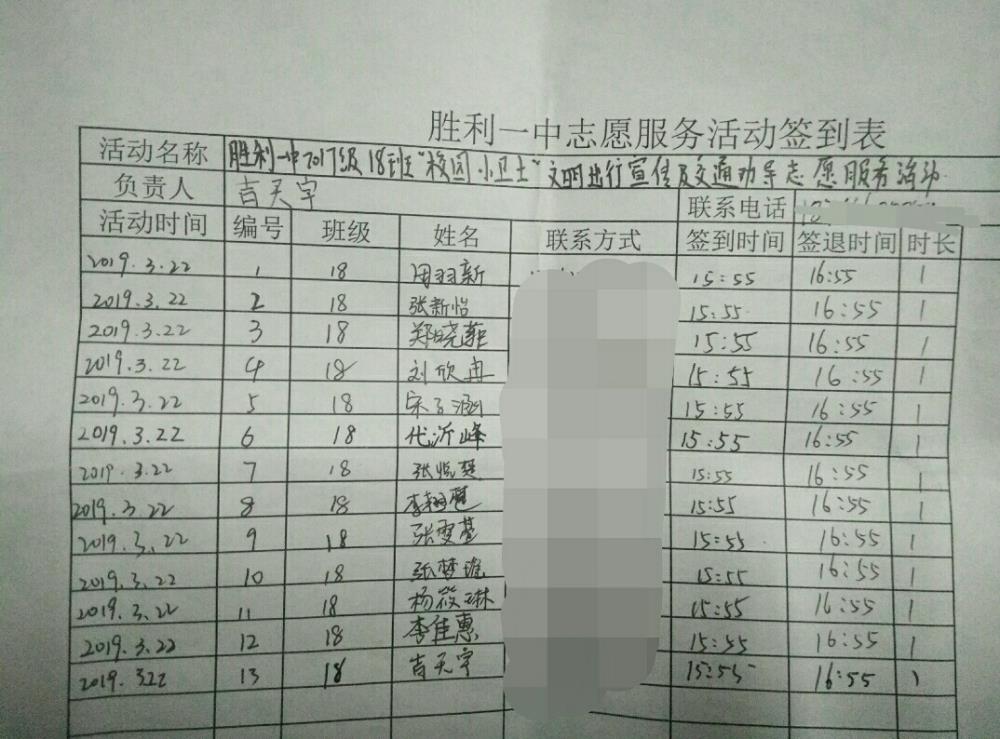 胜利一中志愿服务活动签到表
活动名称 胜利一中2017级18班"校园小卫士"文明出行宣传及交通劝导志愿服务活动.
负责人 吉天宇 联系电话
活动时间 编号 班级 姓名 联系方式 签到时间 签退时间 时长
2019.3.22 1 18 周羽新 15:55 16:55 1
2019.3.22 2 18 张新怡 15:55 16:55 1
2019.3.22 3 18 郑晓 15:55 16:55 1
2019.3.22 4 18 刘欣冉 15:55 16:55 1
2019.3.22 5 18 宋子涵 15:55 16:55 1
2019.3.22 6 18 代沂峰 15:55 16:55 1
2019.3.22 7 18 张悦 15:55 16:55 1
2019.3.22 8 18 李 15:55 16:55 1
2019.3.22 9 18 张雯 15:55 16:55 1
2019.3.22 10 18 张梦瑶 15:55 16:55 1
2019.3.22 11 18 杨筱琳 15:55 16:55 1
2019.3.22 12 18 李佳惠 15:55 16:55 1
2019.322 13 18 吉天宇 15:55 16:55 1